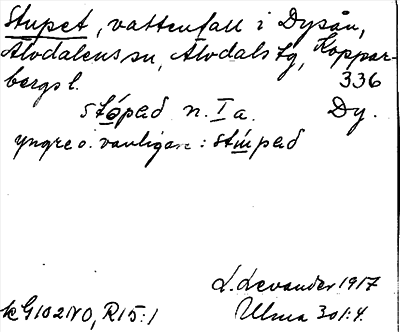 Stupet, vattenfall i Dysån,
Älvdalens sn, Älvdals tg, Koppar-
bergs l. 336
stópad n. I a. Dy.
yngre o. vanligare: stupad
L. Levander 1917
kG102NO, R15:1 Ulma 301:4.